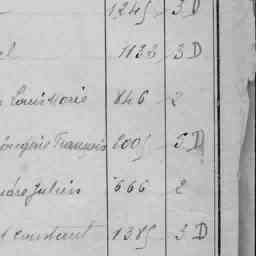 1245 3 D
el 1133 3 D
Louis Marie 846 2
François 2005 3 D
Julien 666 2
Constant 1385 3 D